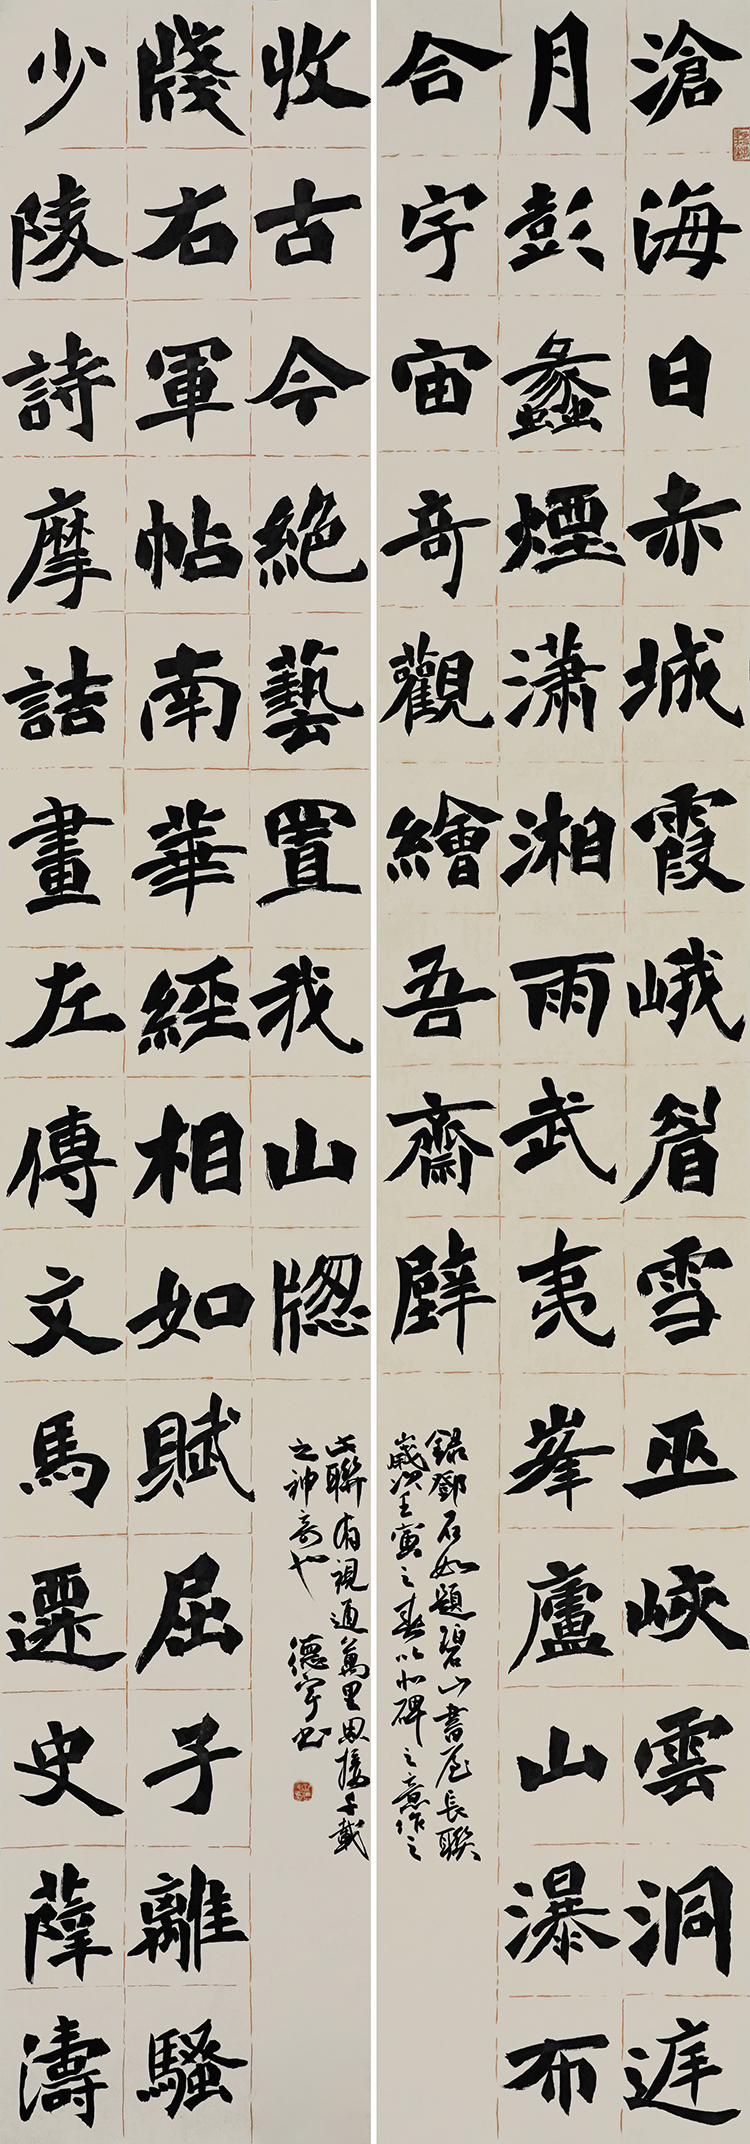 滄海日赤城霞峨眉雪巫峽雲洞庭
月彭蠡煙潇湘雨武夷峯廬山瀑布
合宇宙奇觀繪吾齋壁
錄鄧石如題碧山書屋長聯
歲次壬寅之春以北碑之意作之
少陵詩摩詰畫左傳文馬遷史薛濤
牋右軍帖南華經相如賦屈子離騷
收古今絕藝置我山牕
此聯有視通萬里思接千載
之神奇也 德宇書